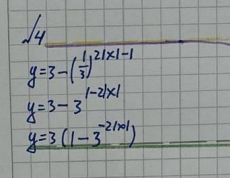 √4
y=3-(1/3)^{2|x|-1}
y=3-3^{1-2|x|}
y=3(1-3^{-2|x|})